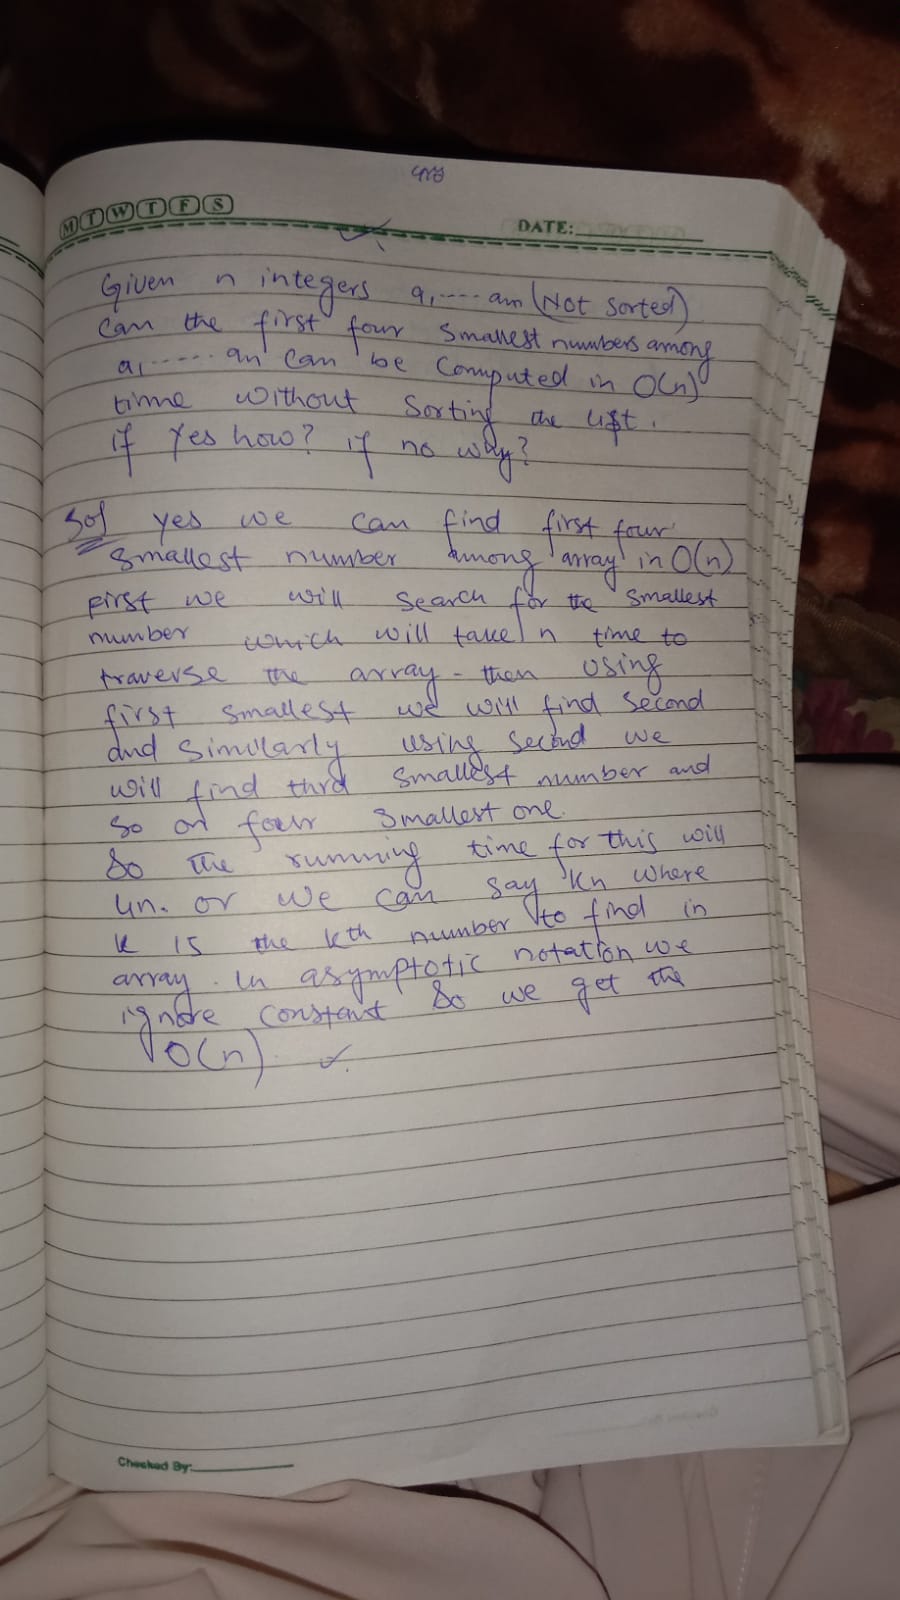 M T W T F S
DATE:
Given n integers a1---- am (Not Sorted)
Can the first four Smallest numbers among
a1------ an can be Computed in O(n)
time without Sorting the list.
if Yes how? if no why?
Sol yes we can find first four
Smallest number among array in O(n)
First we will Search for the Smallest
number which will take n time to
traverse the array - then using
first smallest we will find Second
and Similarly using Second we
will find third Smallest number and
So on four Smallest one.
So the running time for this will
4n. or we can say Kn where
K is the Kth number to find in
array. In asymptotic notation we
ignore constant So we get the
O(n)
Checked By: